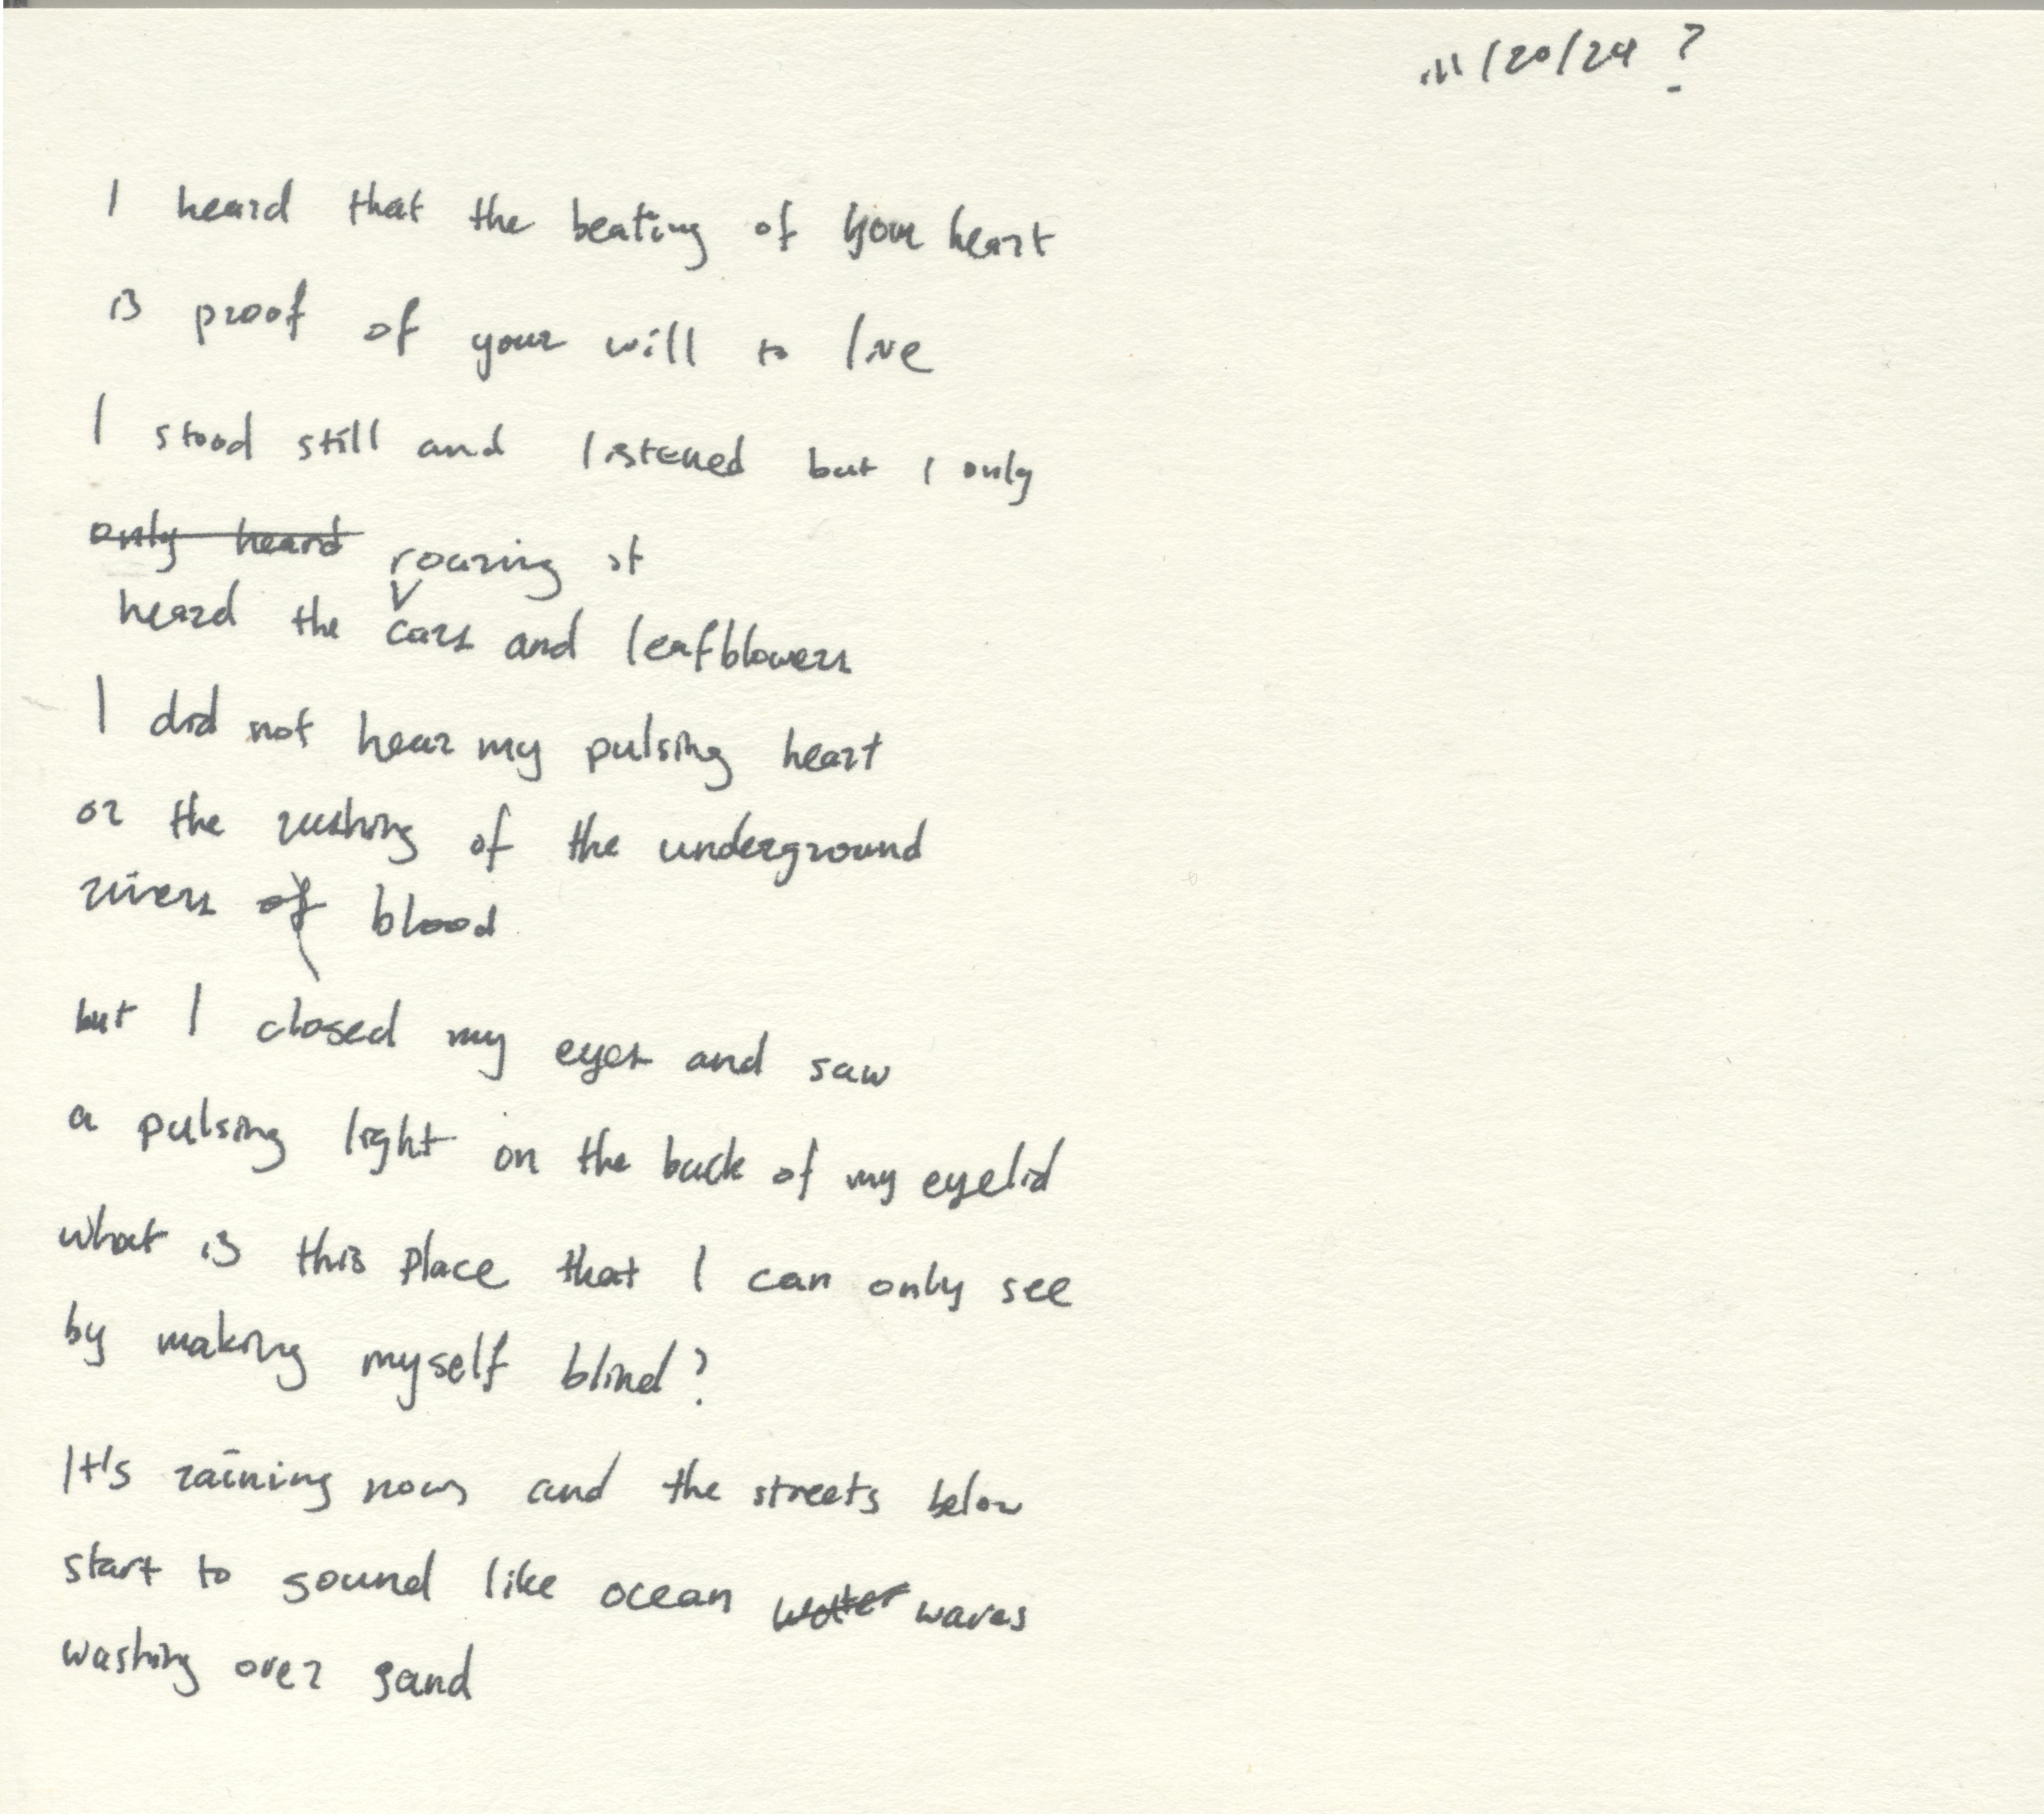 11/20/24 ?
I heard that the beating of your heart
is proof of your will to live
I stood still and listened but I only
only heard roaring st
heard the cars and leafblowers
I did not hear my pulsing heart
or the rushing of the underground
rivers of blood
but I closed my eyes and saw
a pulsing light on the back of my eyelid
what is this place that I can only see
by making myself blind?
It's raining now and the streets below
start to sound like ocean water waves
washing over sand